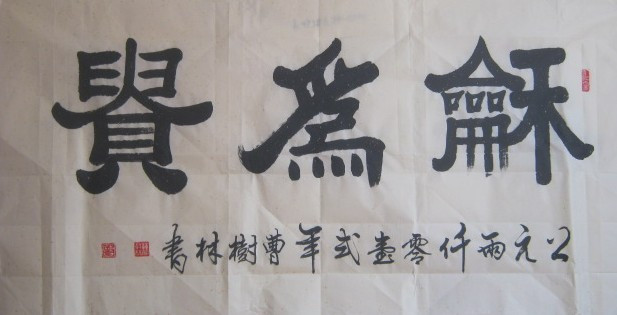 龢爲貴
公元兩仟零壹弍年曹樹林書